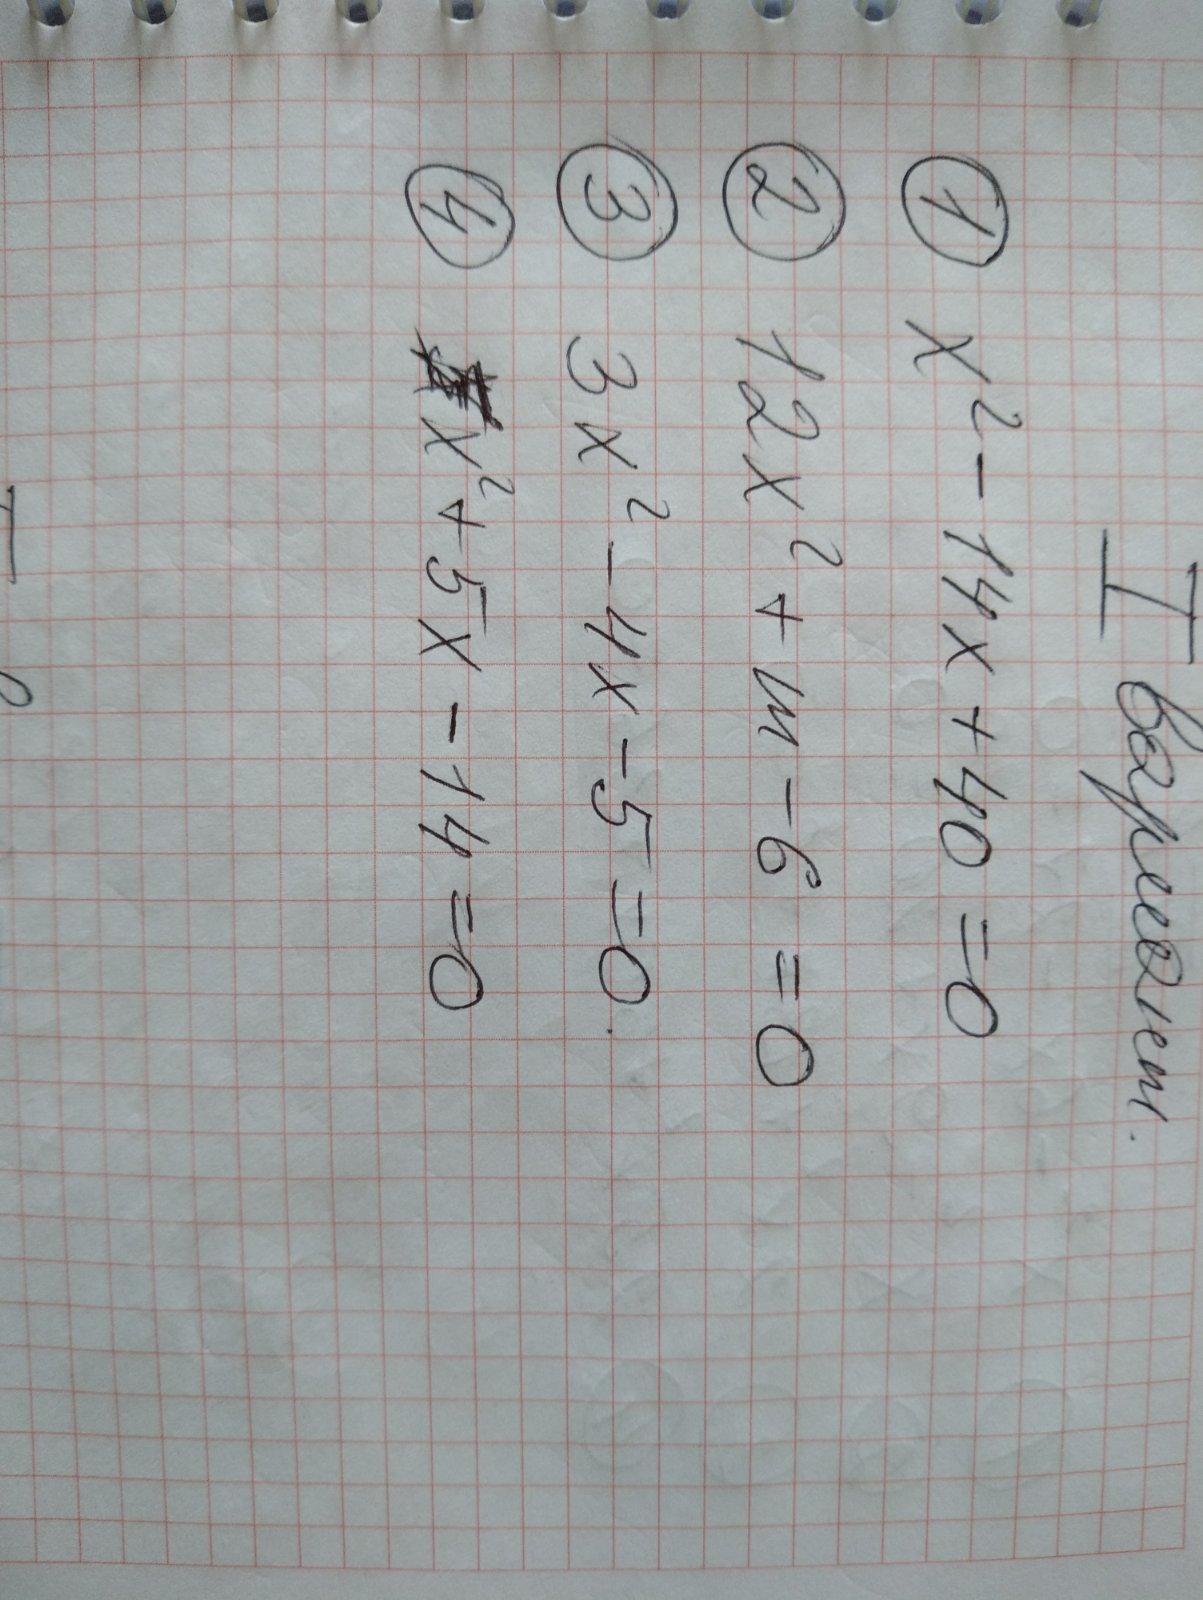 I вариант.
① x² - 14x + 40 = 0
② 12x² + m - 6 = 0
③ 3x² - 4x - 5 = 0.
④ x² + 5x - 14 = 0